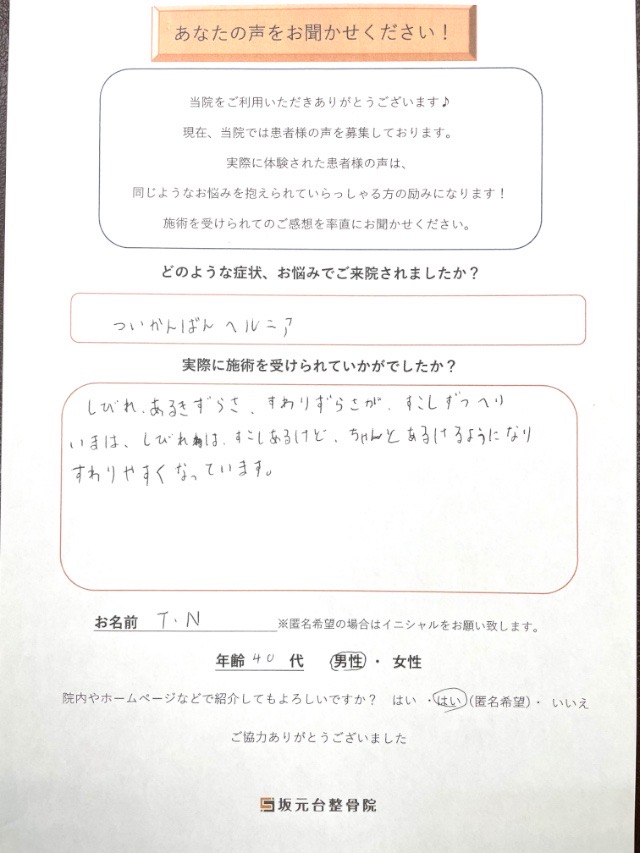 あなたの声をお聞かせください！
当院をご利用いただきありがとうございます♪
現在、当院では患者様の声を募集しております。
実際に体験された患者様の声は、
同じようなお悩みを抱えられていらっしゃる方の励みになります！
施術を受けられてのご感想を率直にお聞かせください。
どのような症状、お悩みでご来院されましたか？
ついかんばんヘルニア
実際に施術を受けられていかがでしたか？
しびれ、あるきずらさ、すわりずらさが、すこしずつへり
いまは、しびれは、すこしあるけど、ちゃんとあるけるようになり
すわりやすくなっています。
お名前 T.N ※匿名希望の場合はイニシャルをお願い致します。
年齢 40 代 男性・女性
院内やホームページなどで紹介してもよろしいですか？ はい・はい(匿名希望)・いいえ
ご協力ありがとうございました
坂元台整骨院